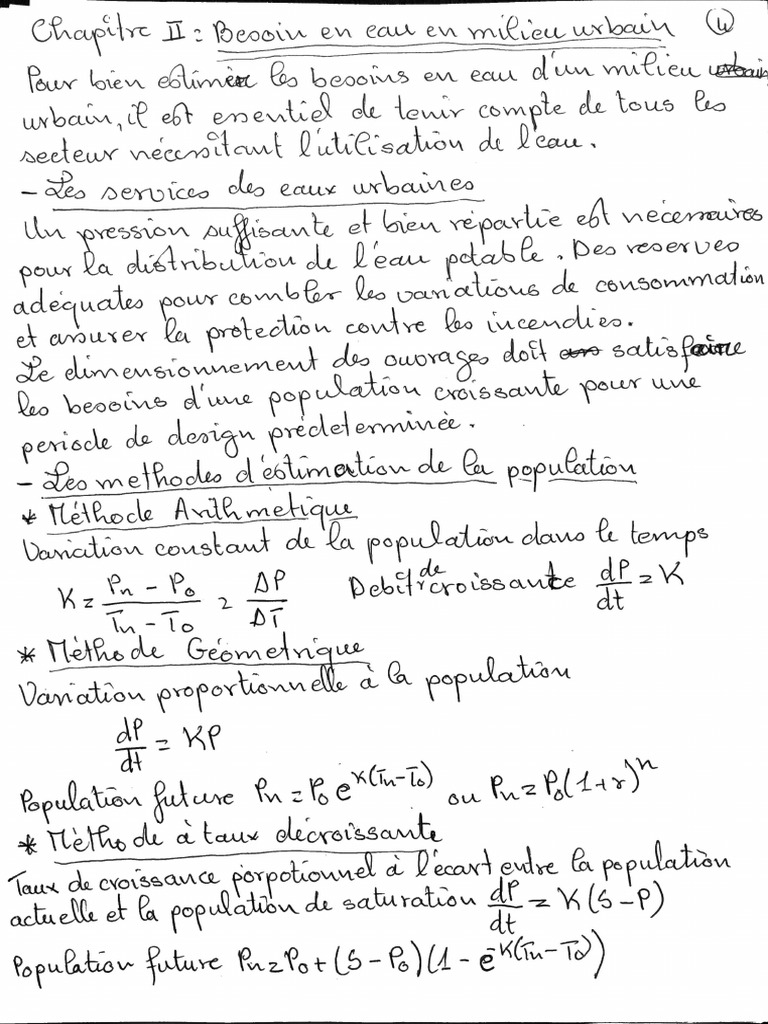 Chapitre II : Besoin en eau en milieu urbain
Pour bien estimer les besoins en eau d'un milieu
urbain, il est essentiel de tenir compte de tous les
secteur nécessitant l'utilisation de l'eau.
- Les services des eaux urbaines
Un pression suffisante et bien répartie est nécessaires
pour la distribution de l'eau potable. Des reserves
adéquates pour combler les variations de consommation
et assurer la protection contre les incendies.
Le dimensionnement des ouvrages doit satisfaire
les besoins d'une population croissante pour une
periode de design prédeterminée.
- Les methodes d'éstimation de la population
* Méthode Arithmétique
Variation constant de la population dans le temps
K = (Pn - P0)/(Tn - T0) = ΔP/ΔT Debit de croissante dP/dt = K
* Méthode Géometrique
Variation proportionnelle à la population
dP/dt = KP
Population future Pn = P0 e^K(Tn-T0) ou Pn = P0(1+r)^n
* Mèthode à taux décroissante
Taux de croissance porpotionnel à l'écart entre la population
actuelle et la population de saturation dP/dt = K(S-P)
Population future Pn = P0 + (S-P0)(1 - e^-K(Tn-T0))